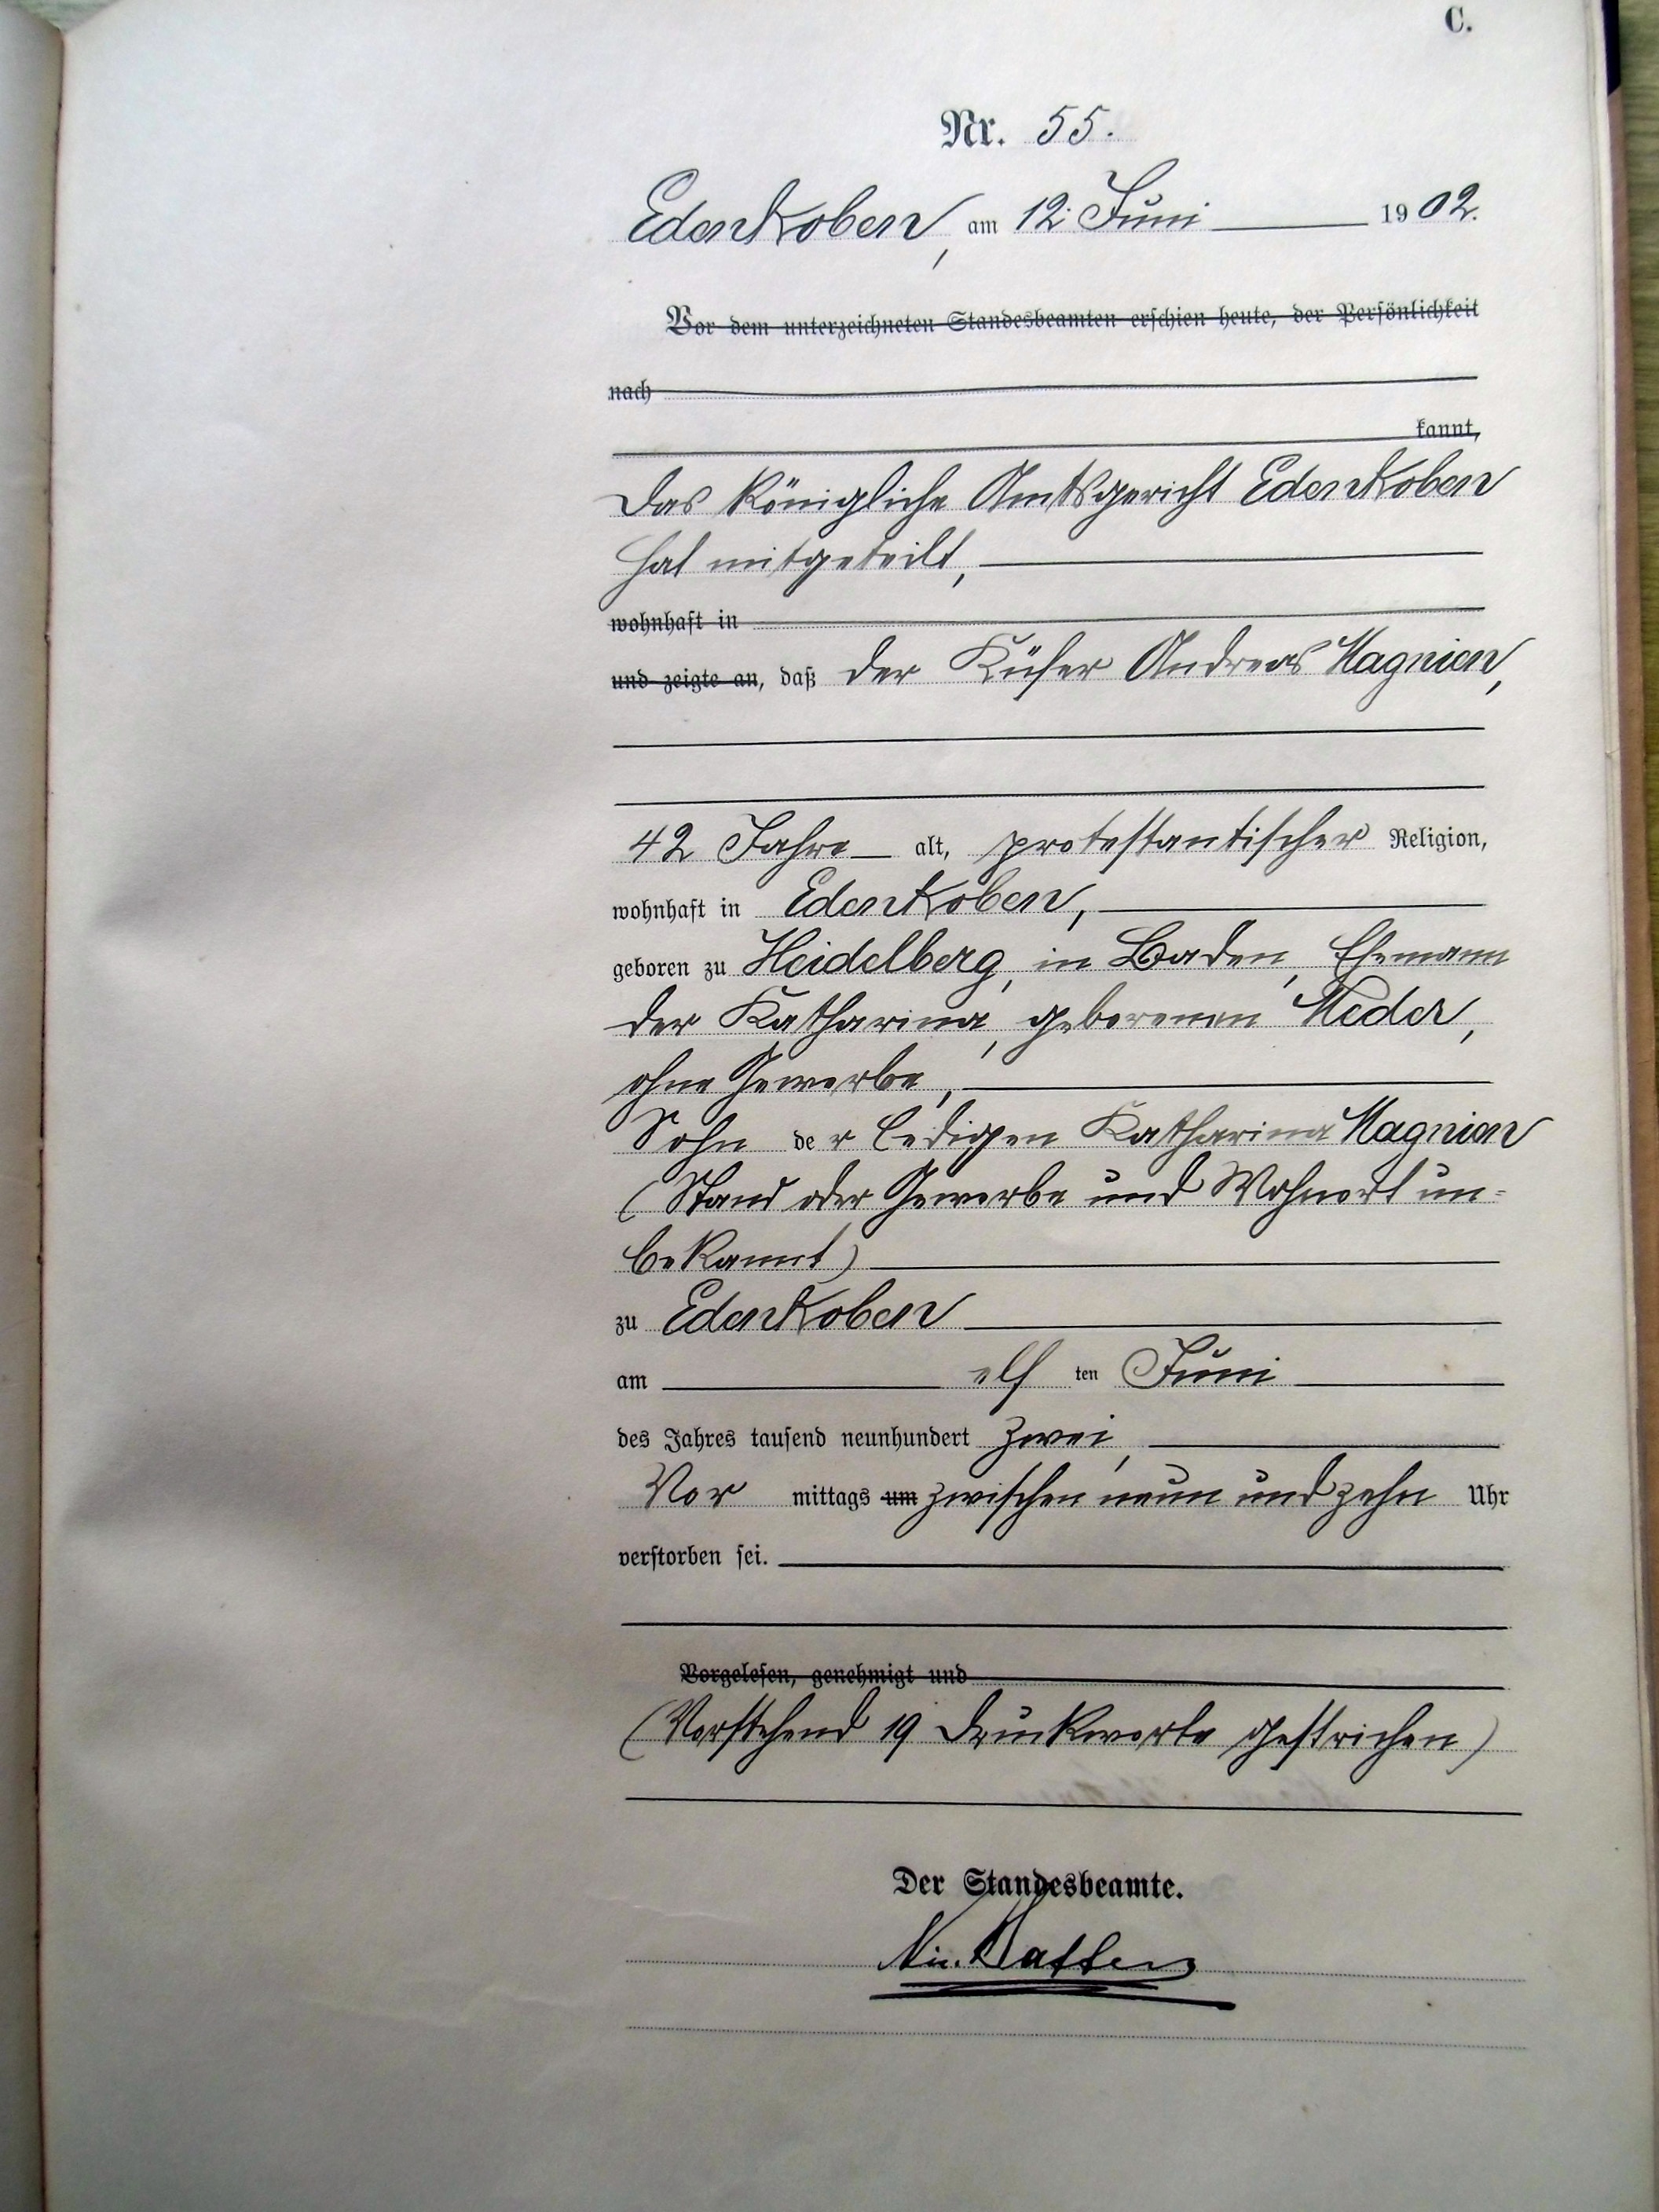 C.
Nr. 55.
Edenkoben, am 12. Juni 1902.
Vor dem unterzeichneten Standesbeamten erschien heute, der Persönlichkeit
nach
kannt,
Das Königliche Amtsgericht Edenkoben
hat mitgeteilt,
wohnhaft in
und zeigte an, daß der Küfer Andreas Magnien,
42 Jahre alt, protestantischer Religion,
wohnhaft in Edenkoben,
geboren zu Heidelberg, in Baden, Ehemann
der Katharina, geborenen Meder,
ohne Gewerbe,
Sohn der ledigen Katharina Magnien
(Stand oder Gewerbe und Wohnort un-
bekannt)
zu Edenkoben
am elf ten Juni
des Jahres tausend neunhundert zwei,
Vor mittags um zwischen neun und zehn Uhr
verstorben sei.
Vorgelesen, genehmigt und
(Vorstehend 19 Druckworte gestrichen)
Der Standesbeamte.